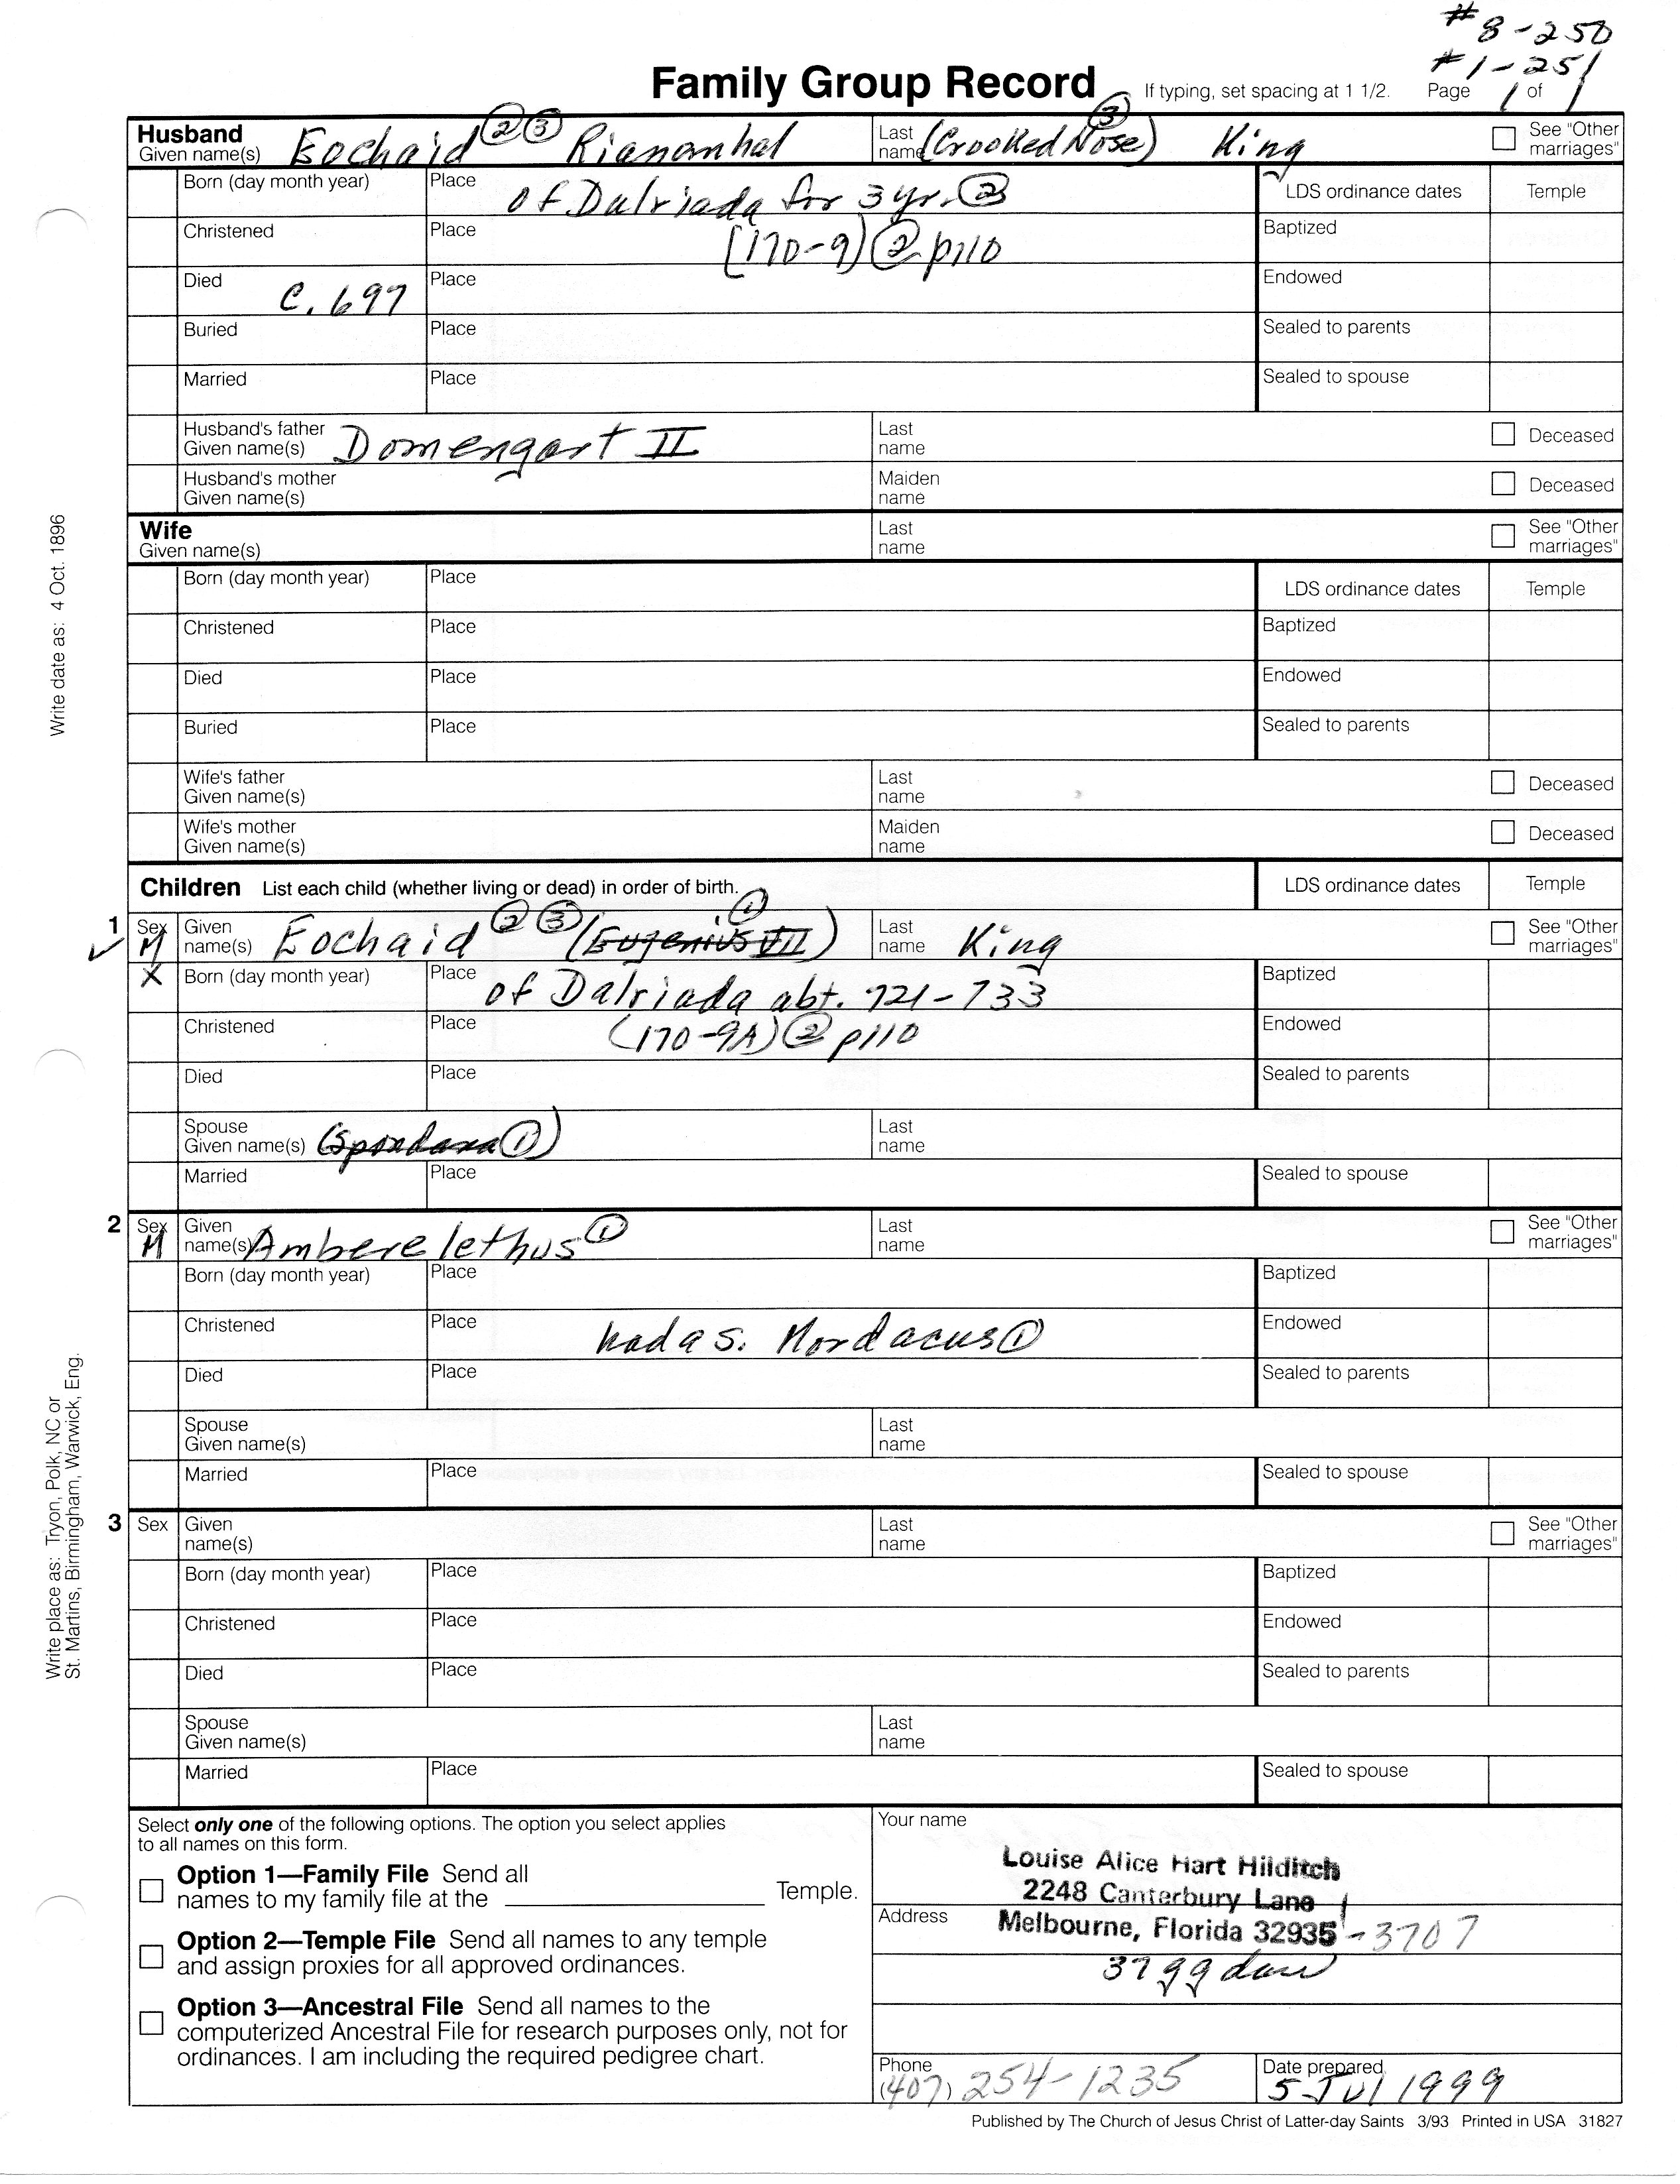 # 8-250
# 1-251
Family Group Record If typing, set spacing at 1 1/2. Page 1 of 1
Husband Given name(s) Eochaid ② ③ Riananhal Last name (Crooked Nose) ③ King See "Other marriages"
Born (day month year) Place of Dalriada for 3 yr. ② LDS ordinance dates Temple
Christened Place [170-9) ② p110 Baptized
Died C. 697 Place Endowed
Buried Place Sealed to parents
Married Place Sealed to spouse
Husband's father Given name(s) Domengart II Last name Deceased
Husband's mother Given name(s) Maiden name Deceased
Wife Given name(s) Last name See "Other marriages"
Born (day month year) Place LDS ordinance dates Temple
Christened Place Baptized
Died Place Endowed
Buried Place Sealed to parents
Wife's father Given name(s) Last name Deceased
Wife's mother Given name(s) Maiden name Deceased
Children List each child (whether living or dead) in order of birth. LDS ordinance dates Temple
1 Sex M Given name(s) Eochaid ② ③ (Eugenius VII) ① Last name King See "Other marriages"
X Born (day month year) Place of Dalriada abt. 721-733 Baptized
Christened Place (170-9A) ② p110 Endowed
Died Place Sealed to parents
Spouse Given name(s) (Spondana ①) Last name
Married Place Sealed to spouse
2 Sex M Given name(s) Amberelethus ① Last name See "Other marriages"
Born (day month year) Place Baptized
Christened Place had a s. Mordacus ① Endowed
Died Place Sealed to parents
Spouse Given name(s) Last name
Married Place Sealed to spouse
3 Sex Given name(s) Last name See "Other marriages"
Born (day month year) Place Baptized
Christened Place Endowed
Died Place Sealed to parents
Spouse Given name(s) Last name
Married Place Sealed to spouse
Write date as: 4 Oct. 1896
Write place as: Tryon, Polk, NC or
St. Martins, Birmingham, Warwick, Eng.
Select only one of the following options. The option you select applies
to all names on this form.
Option 1—Family File Send all
names to my family file at the Temple.
Option 2—Temple File Send all names to any temple
and assign proxies for all approved ordinances.
Option 3—Ancestral File Send all names to the
computerized Ancestral File for research purposes only, not for
ordinances. I am including the required pedigree chart.
Your name
Louise Alice Hart Hilditch
2248 Canterbury Lane
Address Melbourne, Florida 32935-3707
37 gg dau
Phone (407) 254-1235 Date prepared 5 Jul 1999
Published by The Church of Jesus Christ of Latter-day Saints 3/93 Printed in USA 31827